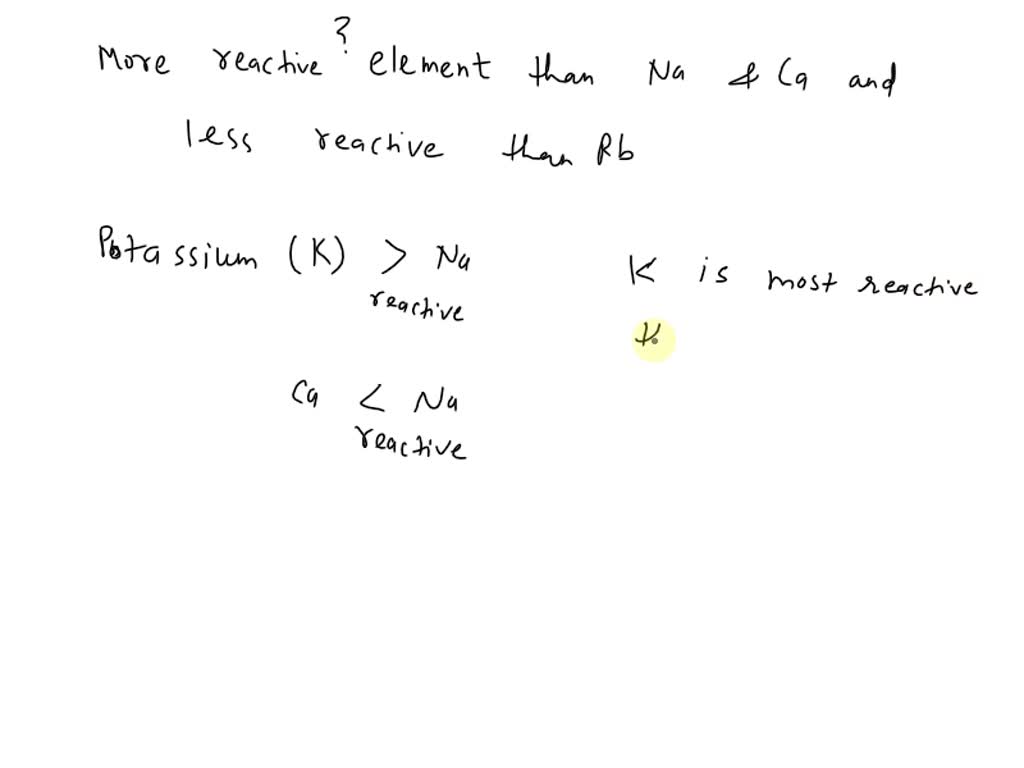 ?
More reactive element than Na & Ca and
less reactive than Rb
Potassium (K) > Na
reactive
K is most reactive
K
Ca < Na
reactive